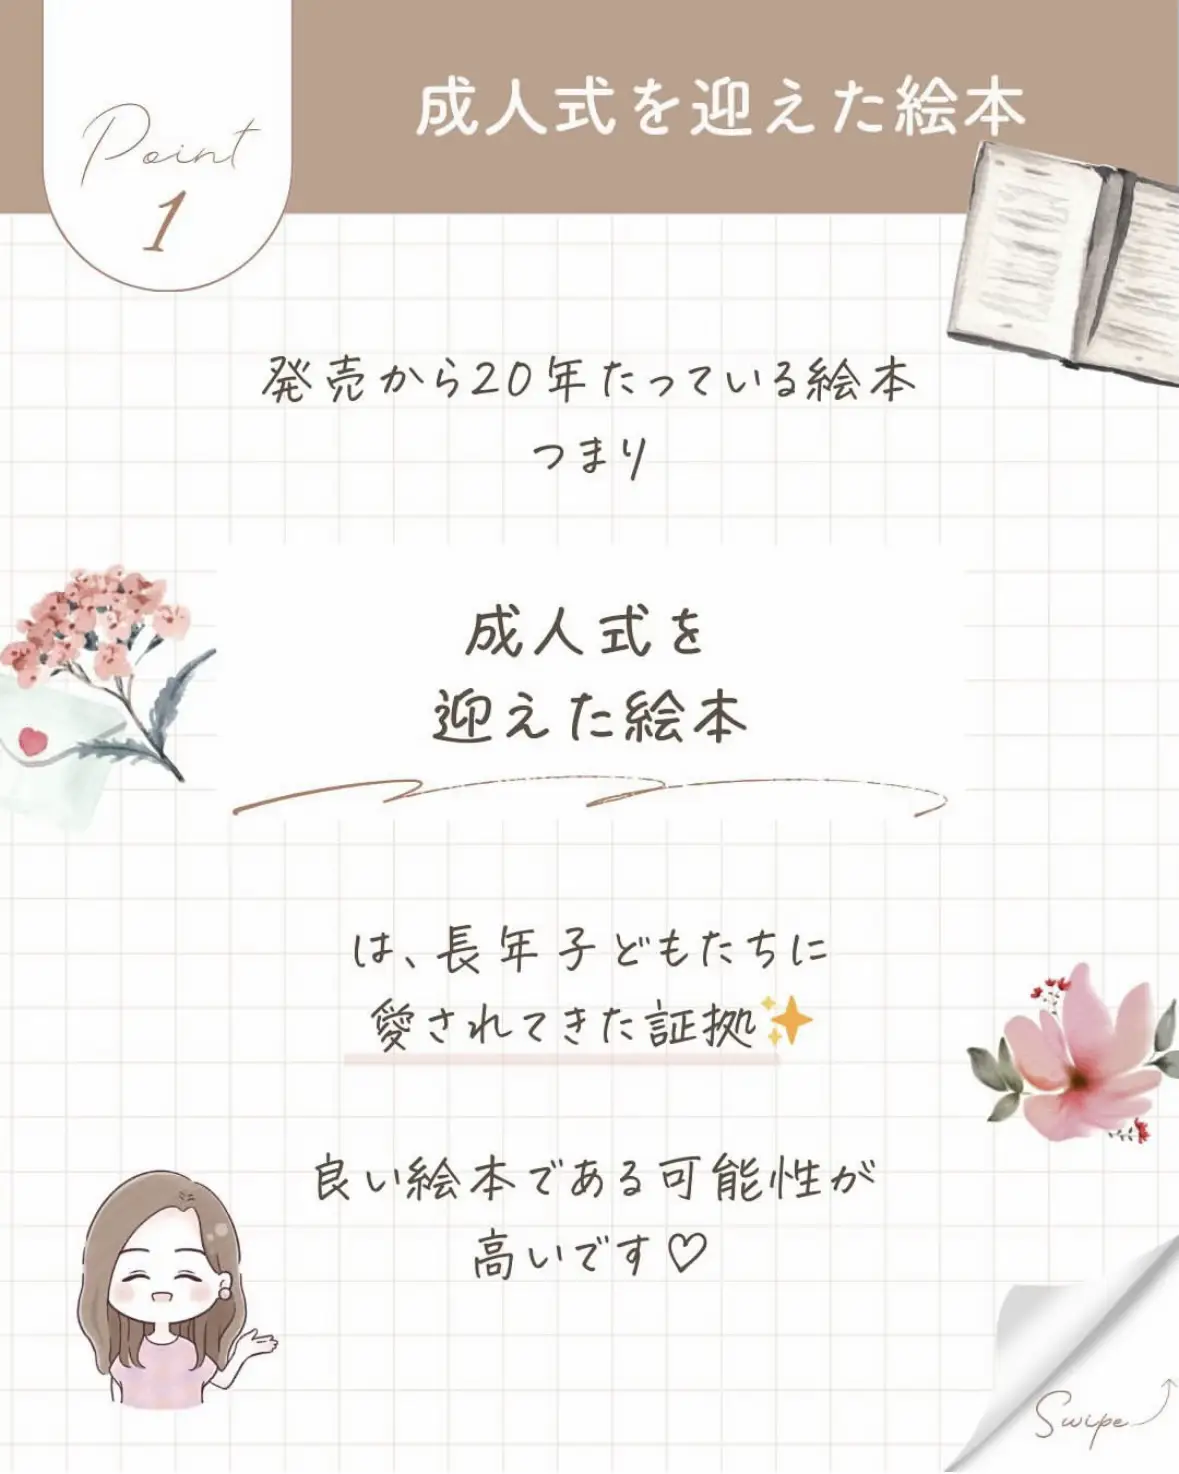 Point
1
成人式を迎えた絵本
発売から20年たっている絵本
つまり
成人式を
迎えた絵本
は、長年子どもたちに
愛されてきた証拠✨
良い絵本である可能性が
高いです♡
Swipe